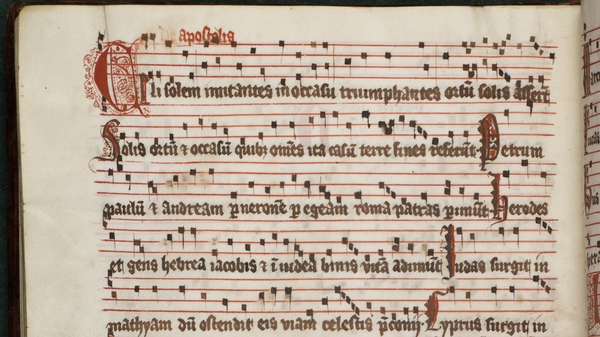 de apostolis
Celi solem imitantes in occasu triumphantes ortū solis asserūt
Solis ortū & occasū quibz omēs ita casū terre fines referūt Petrum
paulū & andream p neronē p egeam roma patras pimūt Herodes
et gens hebrea iacobis & ī iudea binis vitā adimūt Iudas surgit in
mathyam dū ostendit eis viam celestis pconij Cyprus surgit in